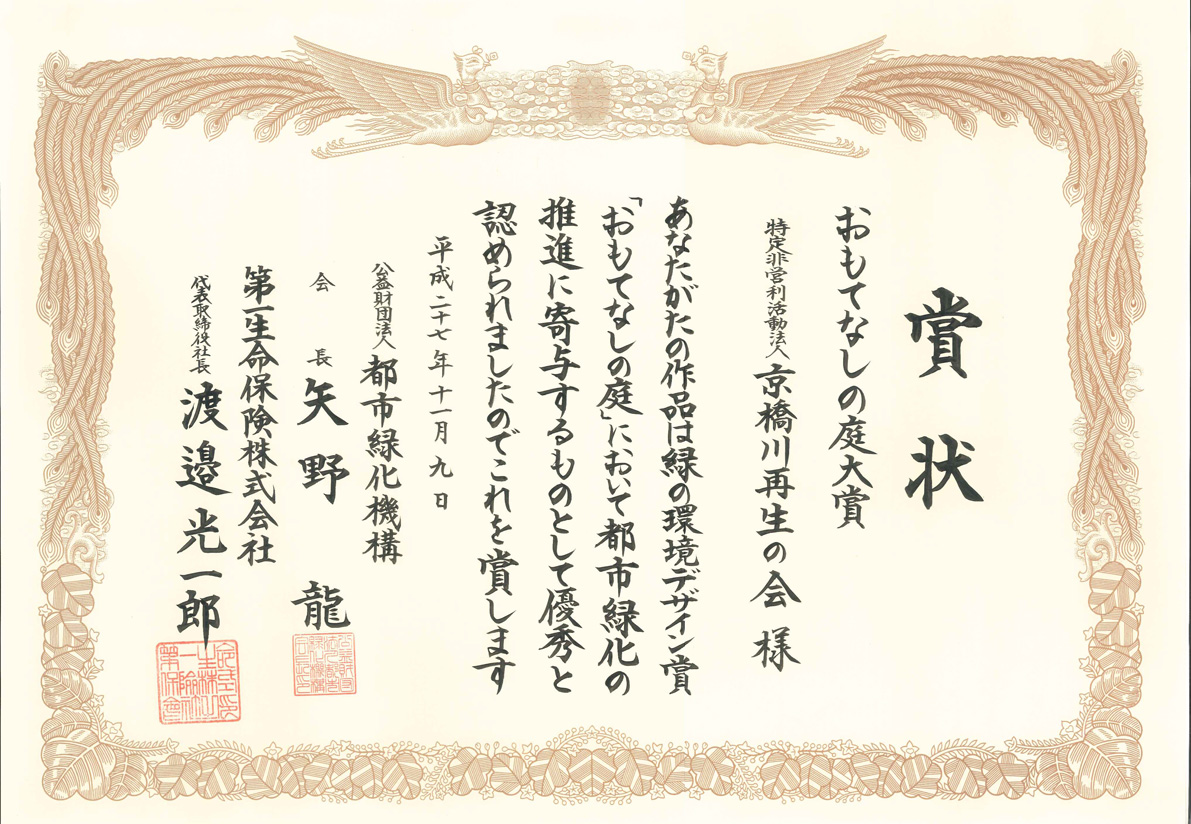 賞状
おもてなしの庭大賞
特定非営利活動法人 京橋川再生の会 様
あなたがたの作品は緑の環境デザイン賞
「おもてなしの庭」において都市緑化の
推進に寄与するものとして優秀と
認められましたのでこれを賞します
平成二十七年十一月九日
公益財団法人 都市緑化機構
会長 矢野 龍
第一生命保険株式会社
代表取締役社長 渡邉光一郎